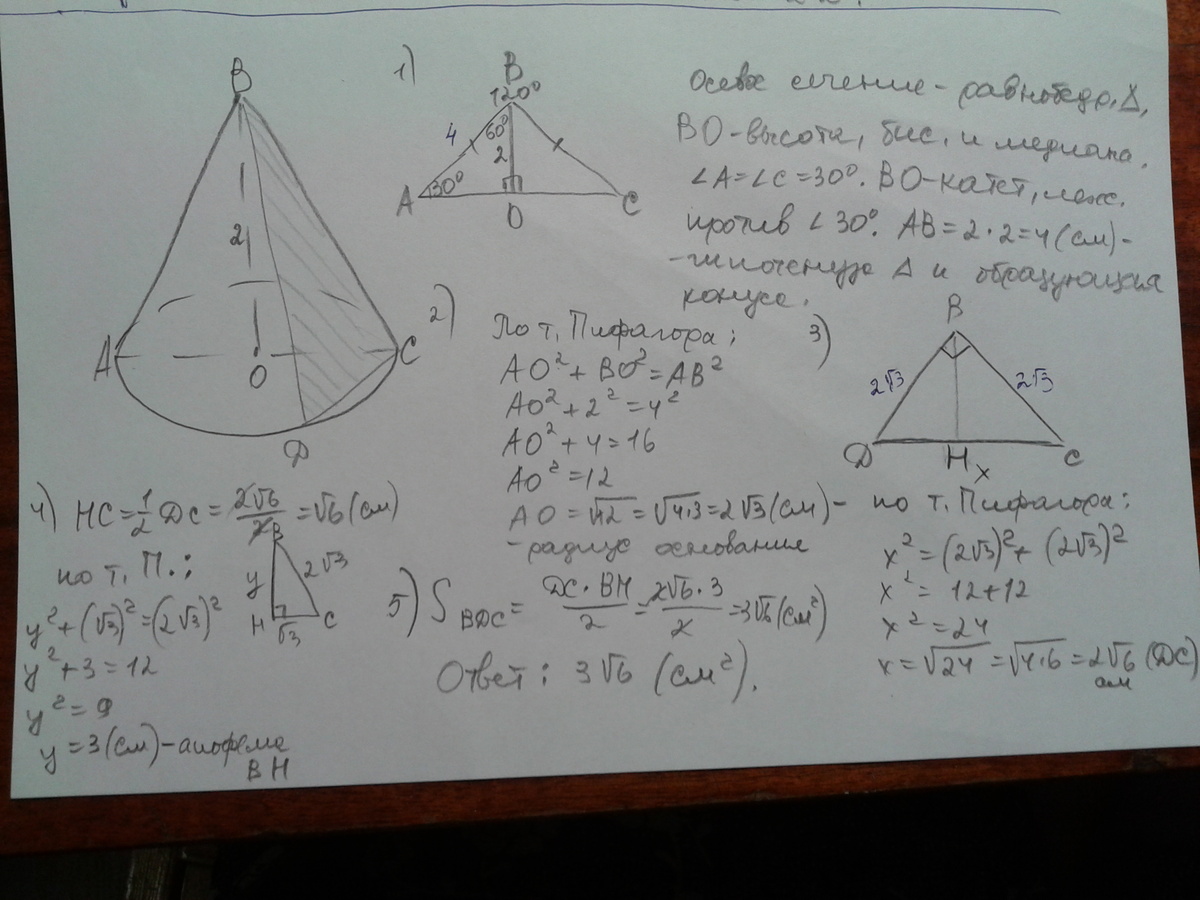 1)
B
120°
60°
4
2
30°
A
O
C
B
2
A
O
C
D
осевое сечение - равнобедр. Δ,
BO - высота, бис. и медиана.
∠A = ∠C = 30°. BO - катет, леж.
против ∠ 30°. AB = 2 · 2 = 4 (см) -
- гипотенуза Δ и образующая
конуса.
2)
По т. Пифагора;
AO² + BO² = AB²
AO² + 2² = 4²
AO² + 4 = 16
AO² = 12
AO = √12 = √4·3 = 2√3 (см) -
- радиус основания
3)
B
2√3
2√3
D
H
x
C
по т. Пифагора:
x² = (2√3)² + (2√3)²
x² = 12 + 12
x² = 24
x = √24 = √4·6 = 2√6 (DC)
см
4) HC = 1/2 DC = 2√6/2 = √6 (см)
по т. П.;
B
y
2√3
H
√3
C
y² + (√3)² = (2√3)²
y² + 3 = 12
y² = 9
y = 3 (см) - апофема
BH
5) S BDC = DC · BH/2 = 2√6 · 3/2 = 3√6 (см²)
Ответ: 3√6 (см²).